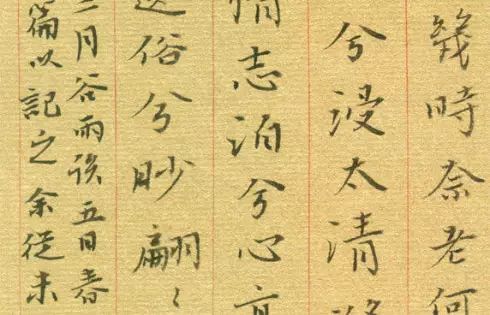 幾時奈老何
兮浸太清
情志泊兮心亭
俗兮眇翩〻
二月谷雨後五日春
篇以記之余從未